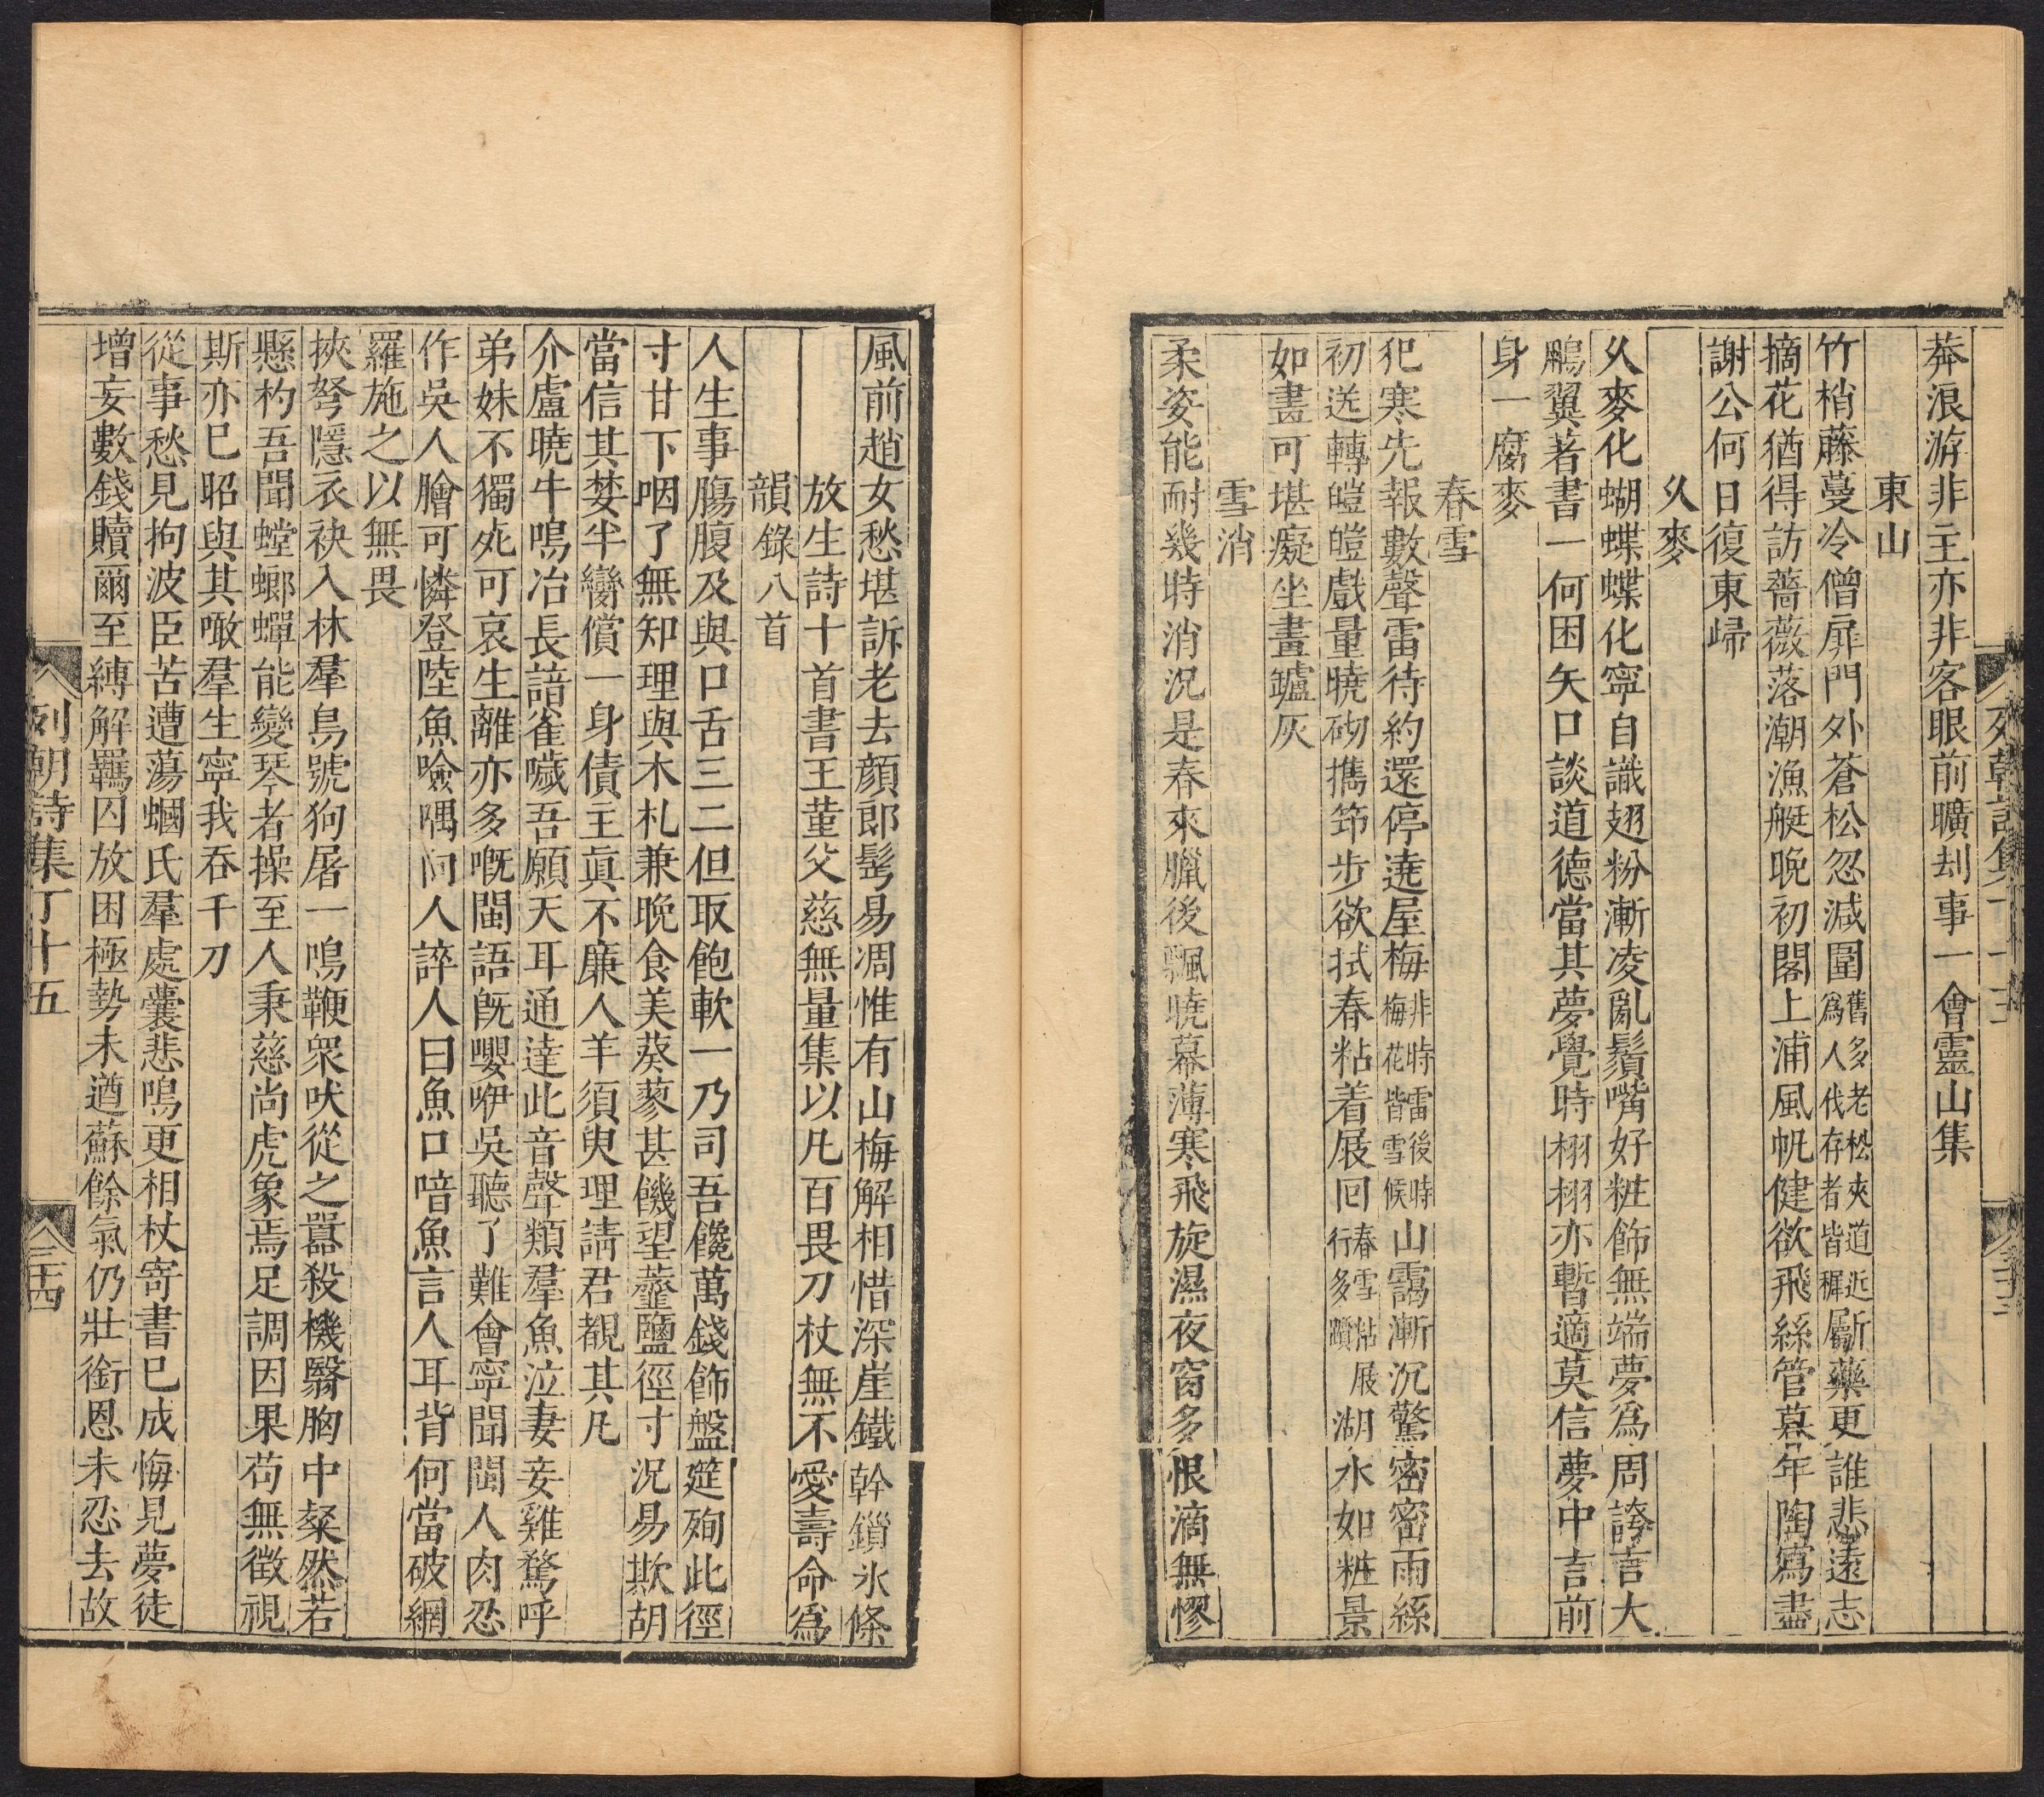 莽浪游非主亦非客眼前曠刦事一會靈山集
東山
竹梢藤蔓冷僧扉門外蒼松忽減圍舊多老松夾道近爲人伐存者皆穉斸藥更誰悲遠志
摘花猶得訪薔薇落潮漁艇晚初閣上浦風帆健欲飛絲管暮年陶寫盡
謝公何日復東歸
久麥
久麥化蝴蝶蝶化寧自識翅粉漸凌亂鬚嘴好粧飾無端夢爲周誇言大
鵬翼著書一何困矢口談道德當其夢覺時栩栩亦暫適莫信夢中言前
身一腐麥
春雪
犯寒先報數聲雷待約還停遶屋梅非時雷後時梅花皆雪候山靄漸沉驚密密雨絲
初送轉皚皚戲量曉砌攜笻步欲拭春粘着屐回春雪粘屐行多躓湖水如粧景
如畫可堪癡坐畫鑪灰
雪消
柔姿能耐幾時消況是春來臘後飄曉幕薄寒飛旋濕夜窗多恨滴無憀
風前趙女愁堪訴老去顔郎髩易凋惟有山梅解相惜深崖鐵幹鎖氷條
放生詩十首書王董父慈無量集以凡百畏刀杖無不愛壽命爲
韻錄八首
人生事膓腹及與口舌三二但取飽軟一乃司吾饞萬錢飾盤筵殉此徑
寸甘下咽了無知理與木札兼晚食美葵蓼甚饑望虀鹽徑寸況易欺胡
當信其婪半臠償一身債主真不廉人羊須臾理請君覩其凡
介盧曉牛鳴冶長諳雀噦吾願天耳通達此音聲類羣魚泣妻妾雞騖呼
弟妹不獨死可哀生離亦多嘅閩語旣嚶咿吳聽了難會寧聞閩人肉忍
作吳人膾可憐登陸魚噞喁向人誶人曰魚口喑魚言人耳背何當破網
羅施之以無畏
挾弩隱衣袂入林羣鳥號狗屠一鳴鞭衆吠從之囂殺機翳胸中粲然若
懸杓吾聞螳螂蟬能變琴者操至人秉慈尚虎象焉足調因果苟無徵視
斯亦已昭與其噉羣生寧我吞千刀
從事愁見拘波臣苦遭蕩蟈氏羣處囊悲鳴更相杖寄書已成悔見夢徒
增妄數錢贖爾至縛解羈囚放困極勢未遒蘇餘氣仍壯銜恩未忍去故
列朝詩集丁十五
三十四